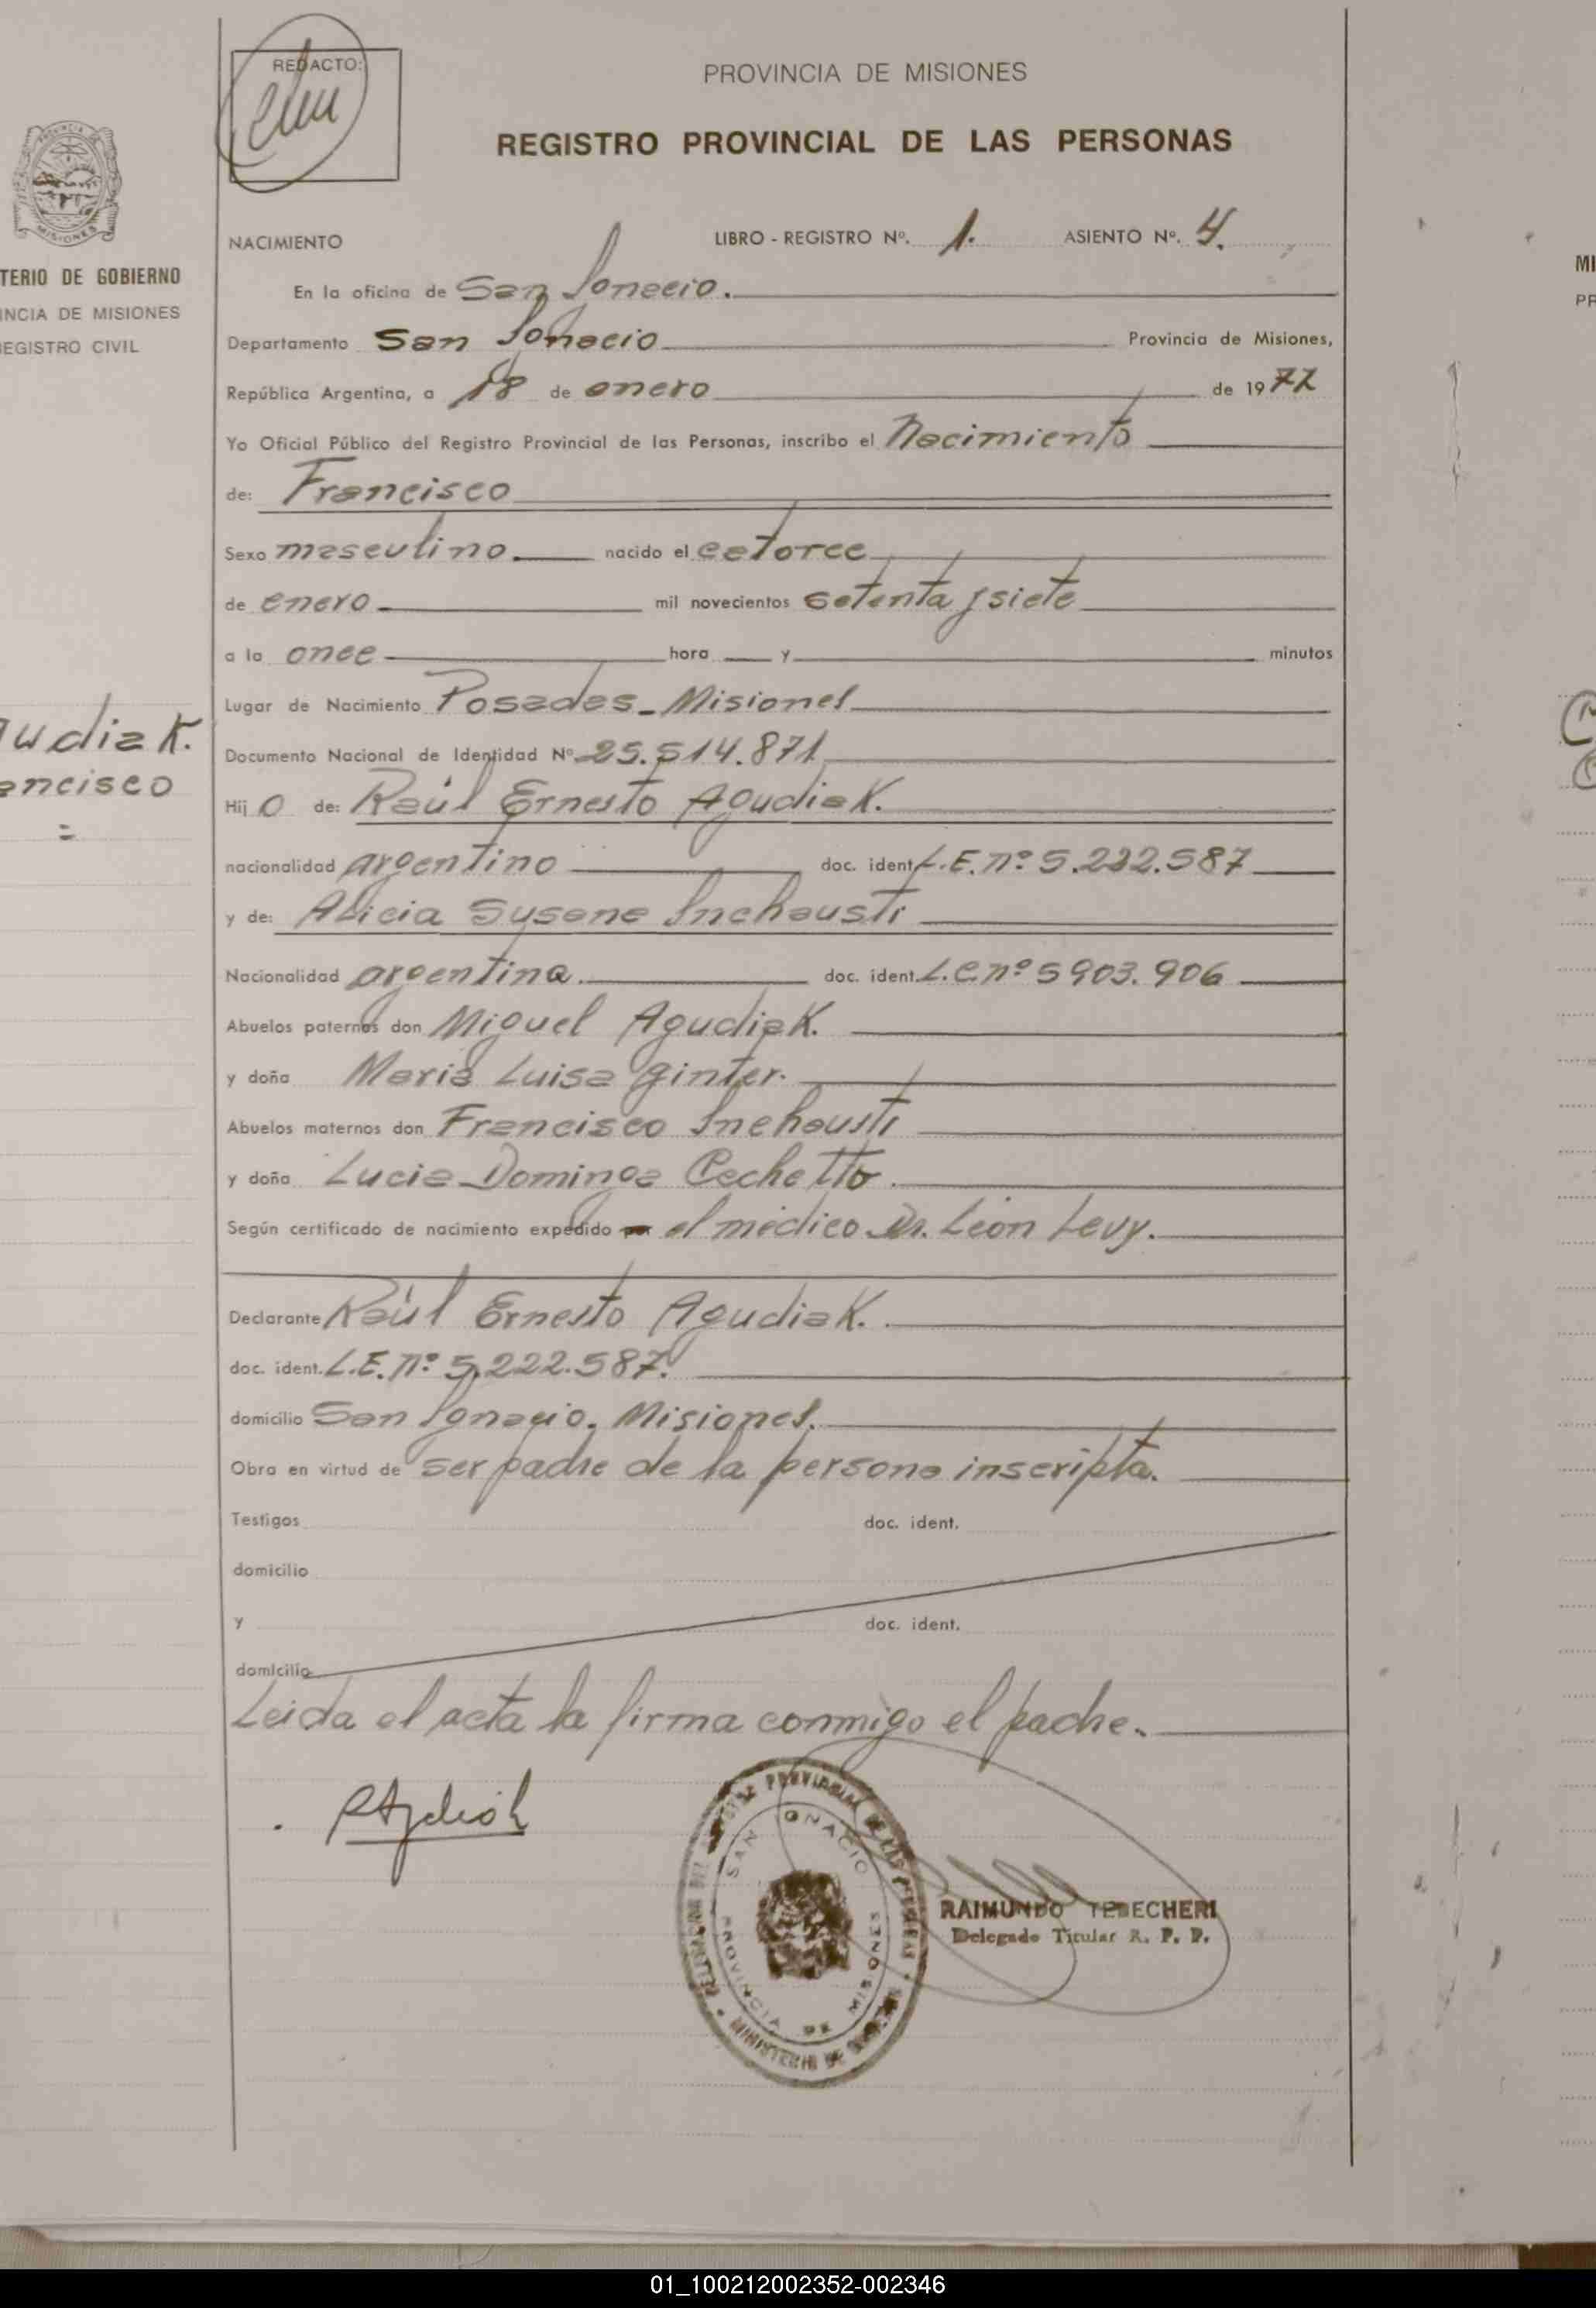 REDACTO:
PROVINCIA DE MISIONES
REGISTRO PROVINCIAL DE LAS PERSONAS
TERIO DE GOBIERNO
INCIA DE MISIONES
REGISTRO CIVIL
NACIMIENTO LIBRO - REGISTRO Nº. 1. ASIENTO Nº. 4.
En la oficina de San Ignacio.
Departamento San Ignacio Provincia de Misiones,
República Argentina, a 18 de enero de 1977
Yo Oficial Público del Registro Provincial de las Personas, inscribo el Nacimiento
de: Francisco
Sexo masculino. nacido el catorce
de enero mil novecientos setenta y siete
a la once hora y minutos
Lugar de Nacimiento Posadas - Misiones
Documento Nacional de Identidad Nº 25.514.871
Hij o de: Raúl Ernesto Agudiak.
nacionalidad argentino doc. ident. L.E. nº 5.222.587
y de: Alicia Susana Inchausti
Nacionalidad argentina. doc. ident. L.C. nº 5903.906
Abuelos paternos don Miguel Agudiak.
y doña Maria Luisa Ginter.
Abuelos maternos don Francisco Inchausti
y doña Lucia Dominga Cechetto.
Según certificado de nacimiento expedido por el médico Dr. León Levy.
Declarante Raúl Ernesto Agudiak.
doc. ident. L.E. nº 5.222.587.
domicilio San Ignacio. Misiones.
Obra en virtud de ser padre de la persona inscripta.
Testigos doc. ident.
domicilio
y doc. ident.
domicilio
Leida el acta la firma conmigo el padre.
udiak.
ancisco
SAN IGNACIO
PROVINCIA DE MISIONES
RAIMUNDO TEBECHERI
Delegado Titular R. P. P.
MI
PR
01_100212002352-002346